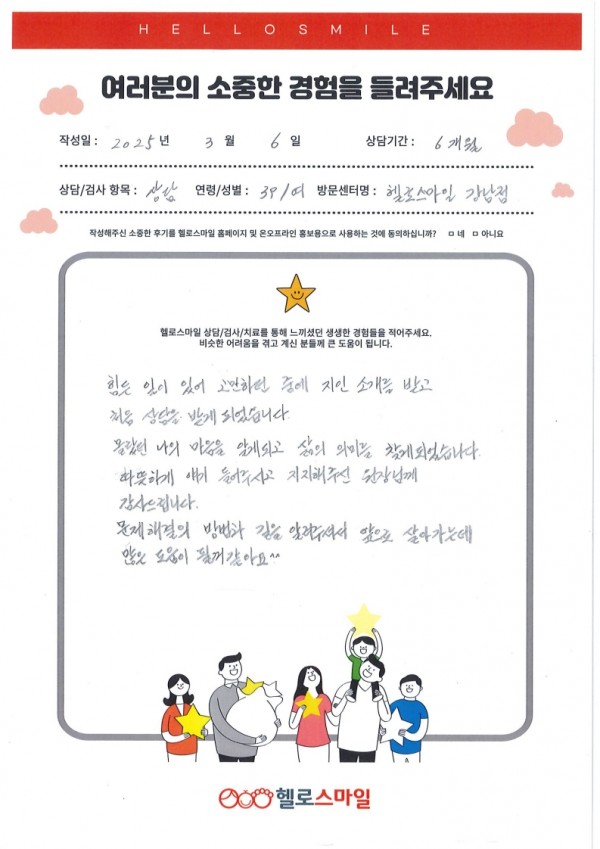 HELLOSMILE
여러분의 소중한 경험을 들려주세요
작성일 : 2025 년 3 월 6 일 상담기간 : 6개월
상담/검사 항목 : 상담 연령/성별 : 39/여 방문센터명 : 헬로스마일 강남점
작성해주신 소중한 후기를 헬로스마일 홈페이지 및 온오프라인 홍보용으로 사용하는 것에 동의하십니까? ㅁ 네 ㅁ 아니요
헬로스마일 상담/검사/치료를 통해 느끼셨던 생생한 경험들을 적어주세요.
비슷한 어려움을 겪고 계신 분들께 큰 도움이 됩니다.
힘든 일이 있어 고민하던 중에 지인 소개를 받고
처음 상담을 받게 되었습니다.
몰랐던 나의 마음을 알게되고 삶의 의미를 찾게되었습니다.
따뜻하게 얘기 들어주시고 지지해주신 원장님께
감사드립니다.
문제해결의 방법과 길을 알려주셔서 앞으로 살아가는데
많은 도움이 될꺼같아요^^
헬로스마일